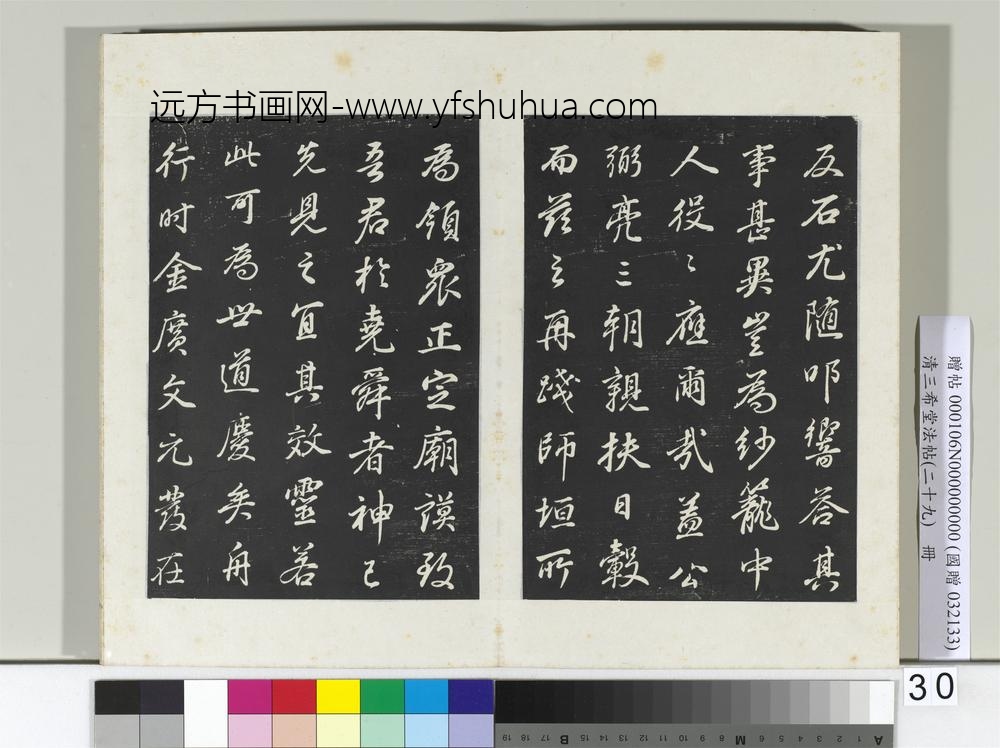 远方书画网-www.yfshuhua.com
反石尤随叩響答其
事甚異豈為紗籠中
人役〻應爾哉蓋公
弼亮三朝親扶日轂
而茲之再踐師垣所
為領眾正定廟謨致
吾君於堯舜者神已
先見之宜其效靈若
此可為世道慶矣舟
行时金廣文元發在
贈帖 000106N000000000 (國贈 032133)
清三希堂法帖(二十九) 冊
30